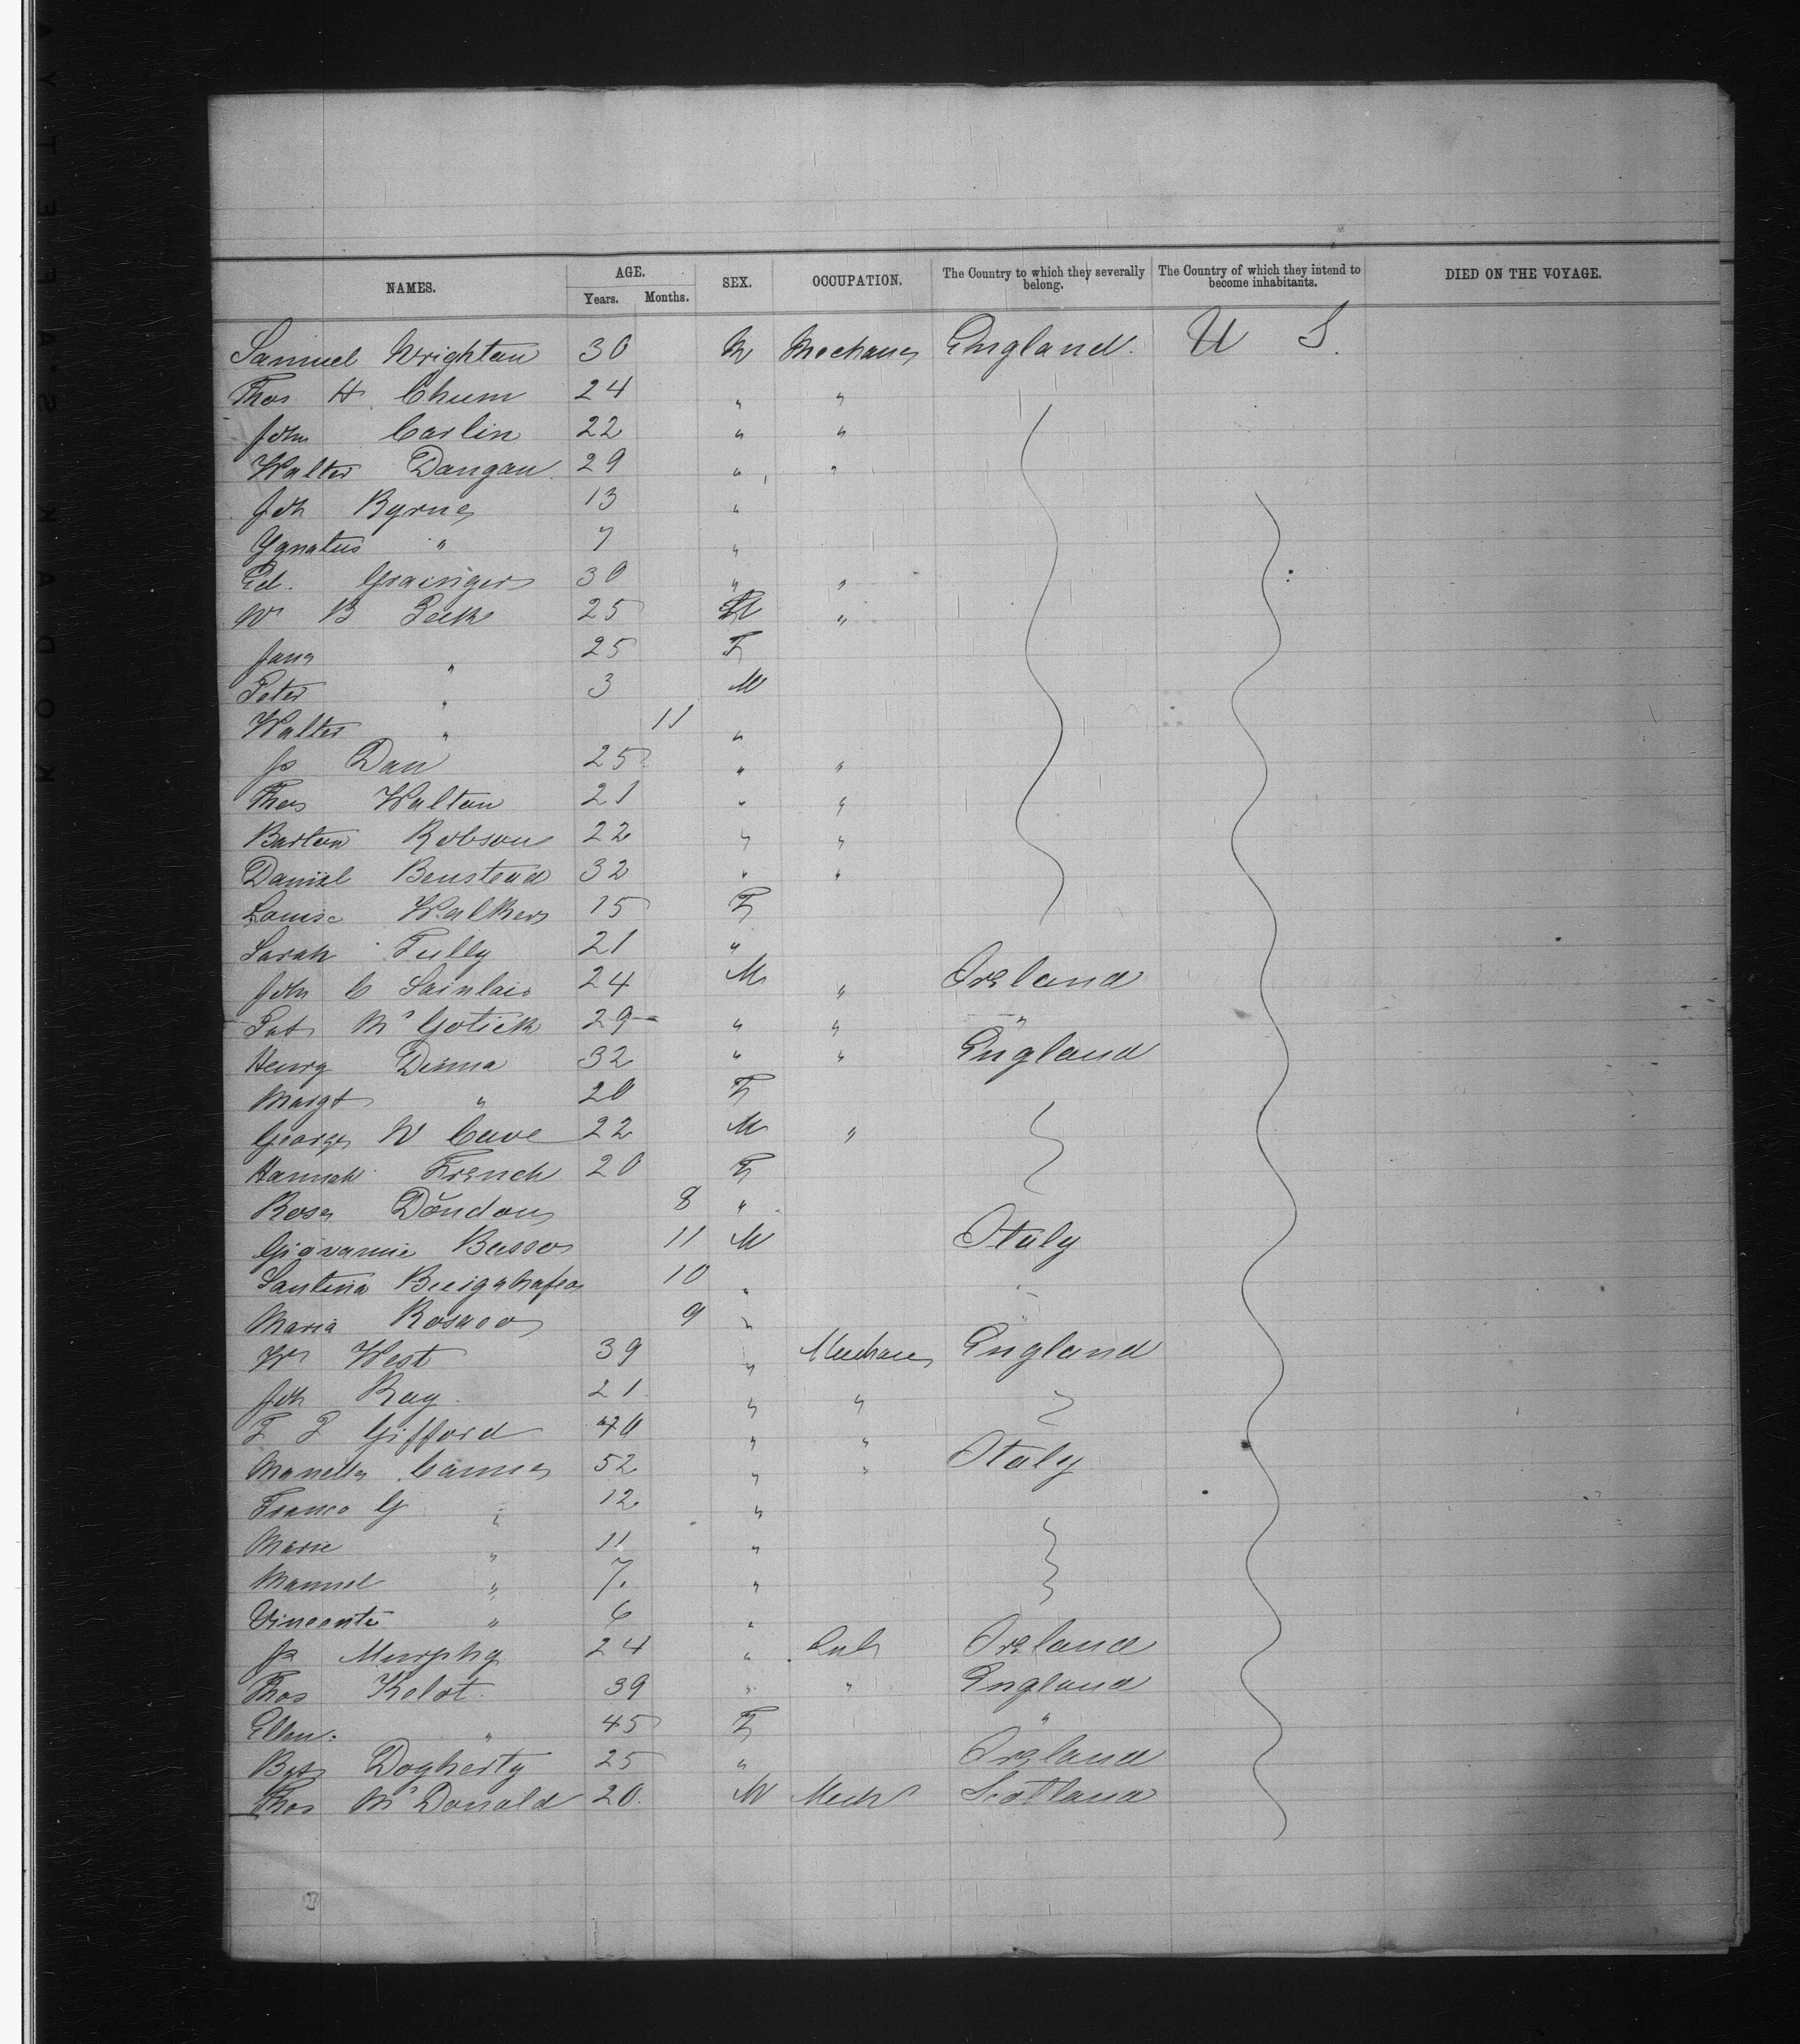 NAMES. AGE. Years. Months. SEX. OCCUPATION. The Country to which they severally belong. The Country of which they intend to become inhabitants. DIED ON THE VOYAGE.
Samuel Wrightan 30 M England. U S.
Thos H Chum 24 " "
John Carlin 22 " "
Walter Dangan 29 " "
Joh Byrne 13 "
Ygnatus " 7 "
Ed. Grainger 30 " "
W B Peeke 25 M "
Jane " 25 F
Peter " 3 M
Walter " 11 "
Js Dan 25 " "
Thos Waltan 21 " "
Barton Robson 22 " "
Daniel Benstead 32 " "
Louise Walker 15 F
Sarah Tully 21 "
John C 24 M " Ireland
Pat Mc 29 " " "
Henry Dinna 32 " " England
Margt " 20 F
George W Cave 22 M "
Hannah French 20 F
Rosa 8 "
Giovannie Basso 11 M Italy
Santina 10 "
Maria 9 "
Wm West 39 " England
Joh Ray 21 " "
Gifford 40 " "
52 " " Italy
Franco G " 12 "
Marie " 11 "
Manuel " 7. "
Vincente " 6 "
Js Murphy 24 " Lab Ireland
Thos Kelot 39 " " England
Ellen. " 45 F "
Bgt Dogherty 25 " Ireland
Thos Mc Donald 20. M Mech Scotland